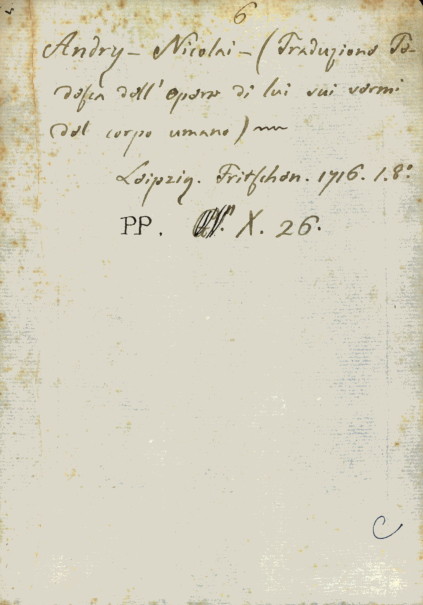 6
Andry - Nicolai - (Traduzione Te-
desca dell' opera di lui sui vermi
del corpo umano)
Leipzig. Fritschen. 1716. 1. 8°
PP. X. 26.
C